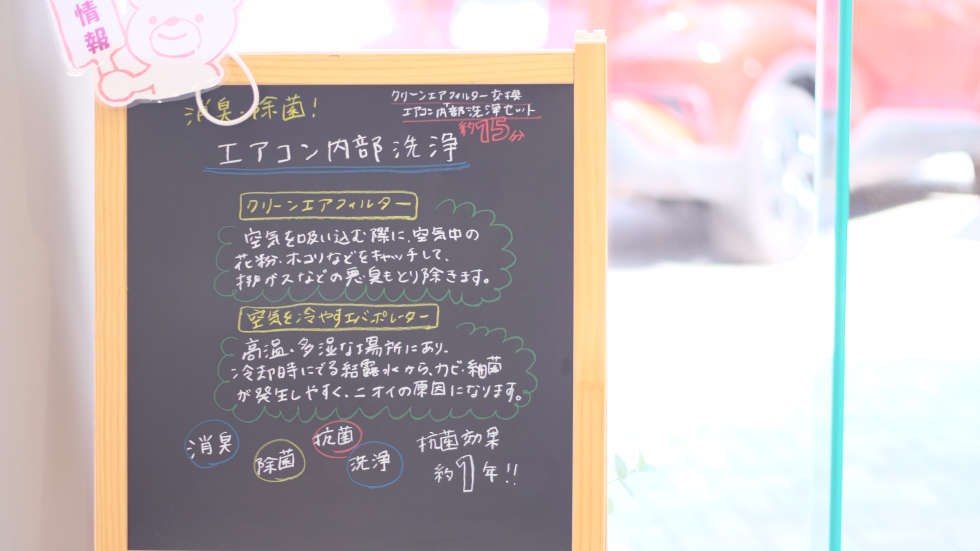 情報
消臭・除菌!
クリーンエアフィルター交換
エアコン内部洗浄セット
約15分
エアコン内部洗浄
クリーンエアフィルター
空気を吸い込む際に、空気中の
花粉・ホコリなどをキャッチして、
排ガスなどの悪臭もとり除きます。
空気を冷やすエバポレーター
高温・多湿な場所にあり、
冷却時にでる結露水から、カビ・細菌
が発生しやすく、ニオイの原因になります。
消臭
除菌
抗菌
洗浄
抗菌効果
約1年!!